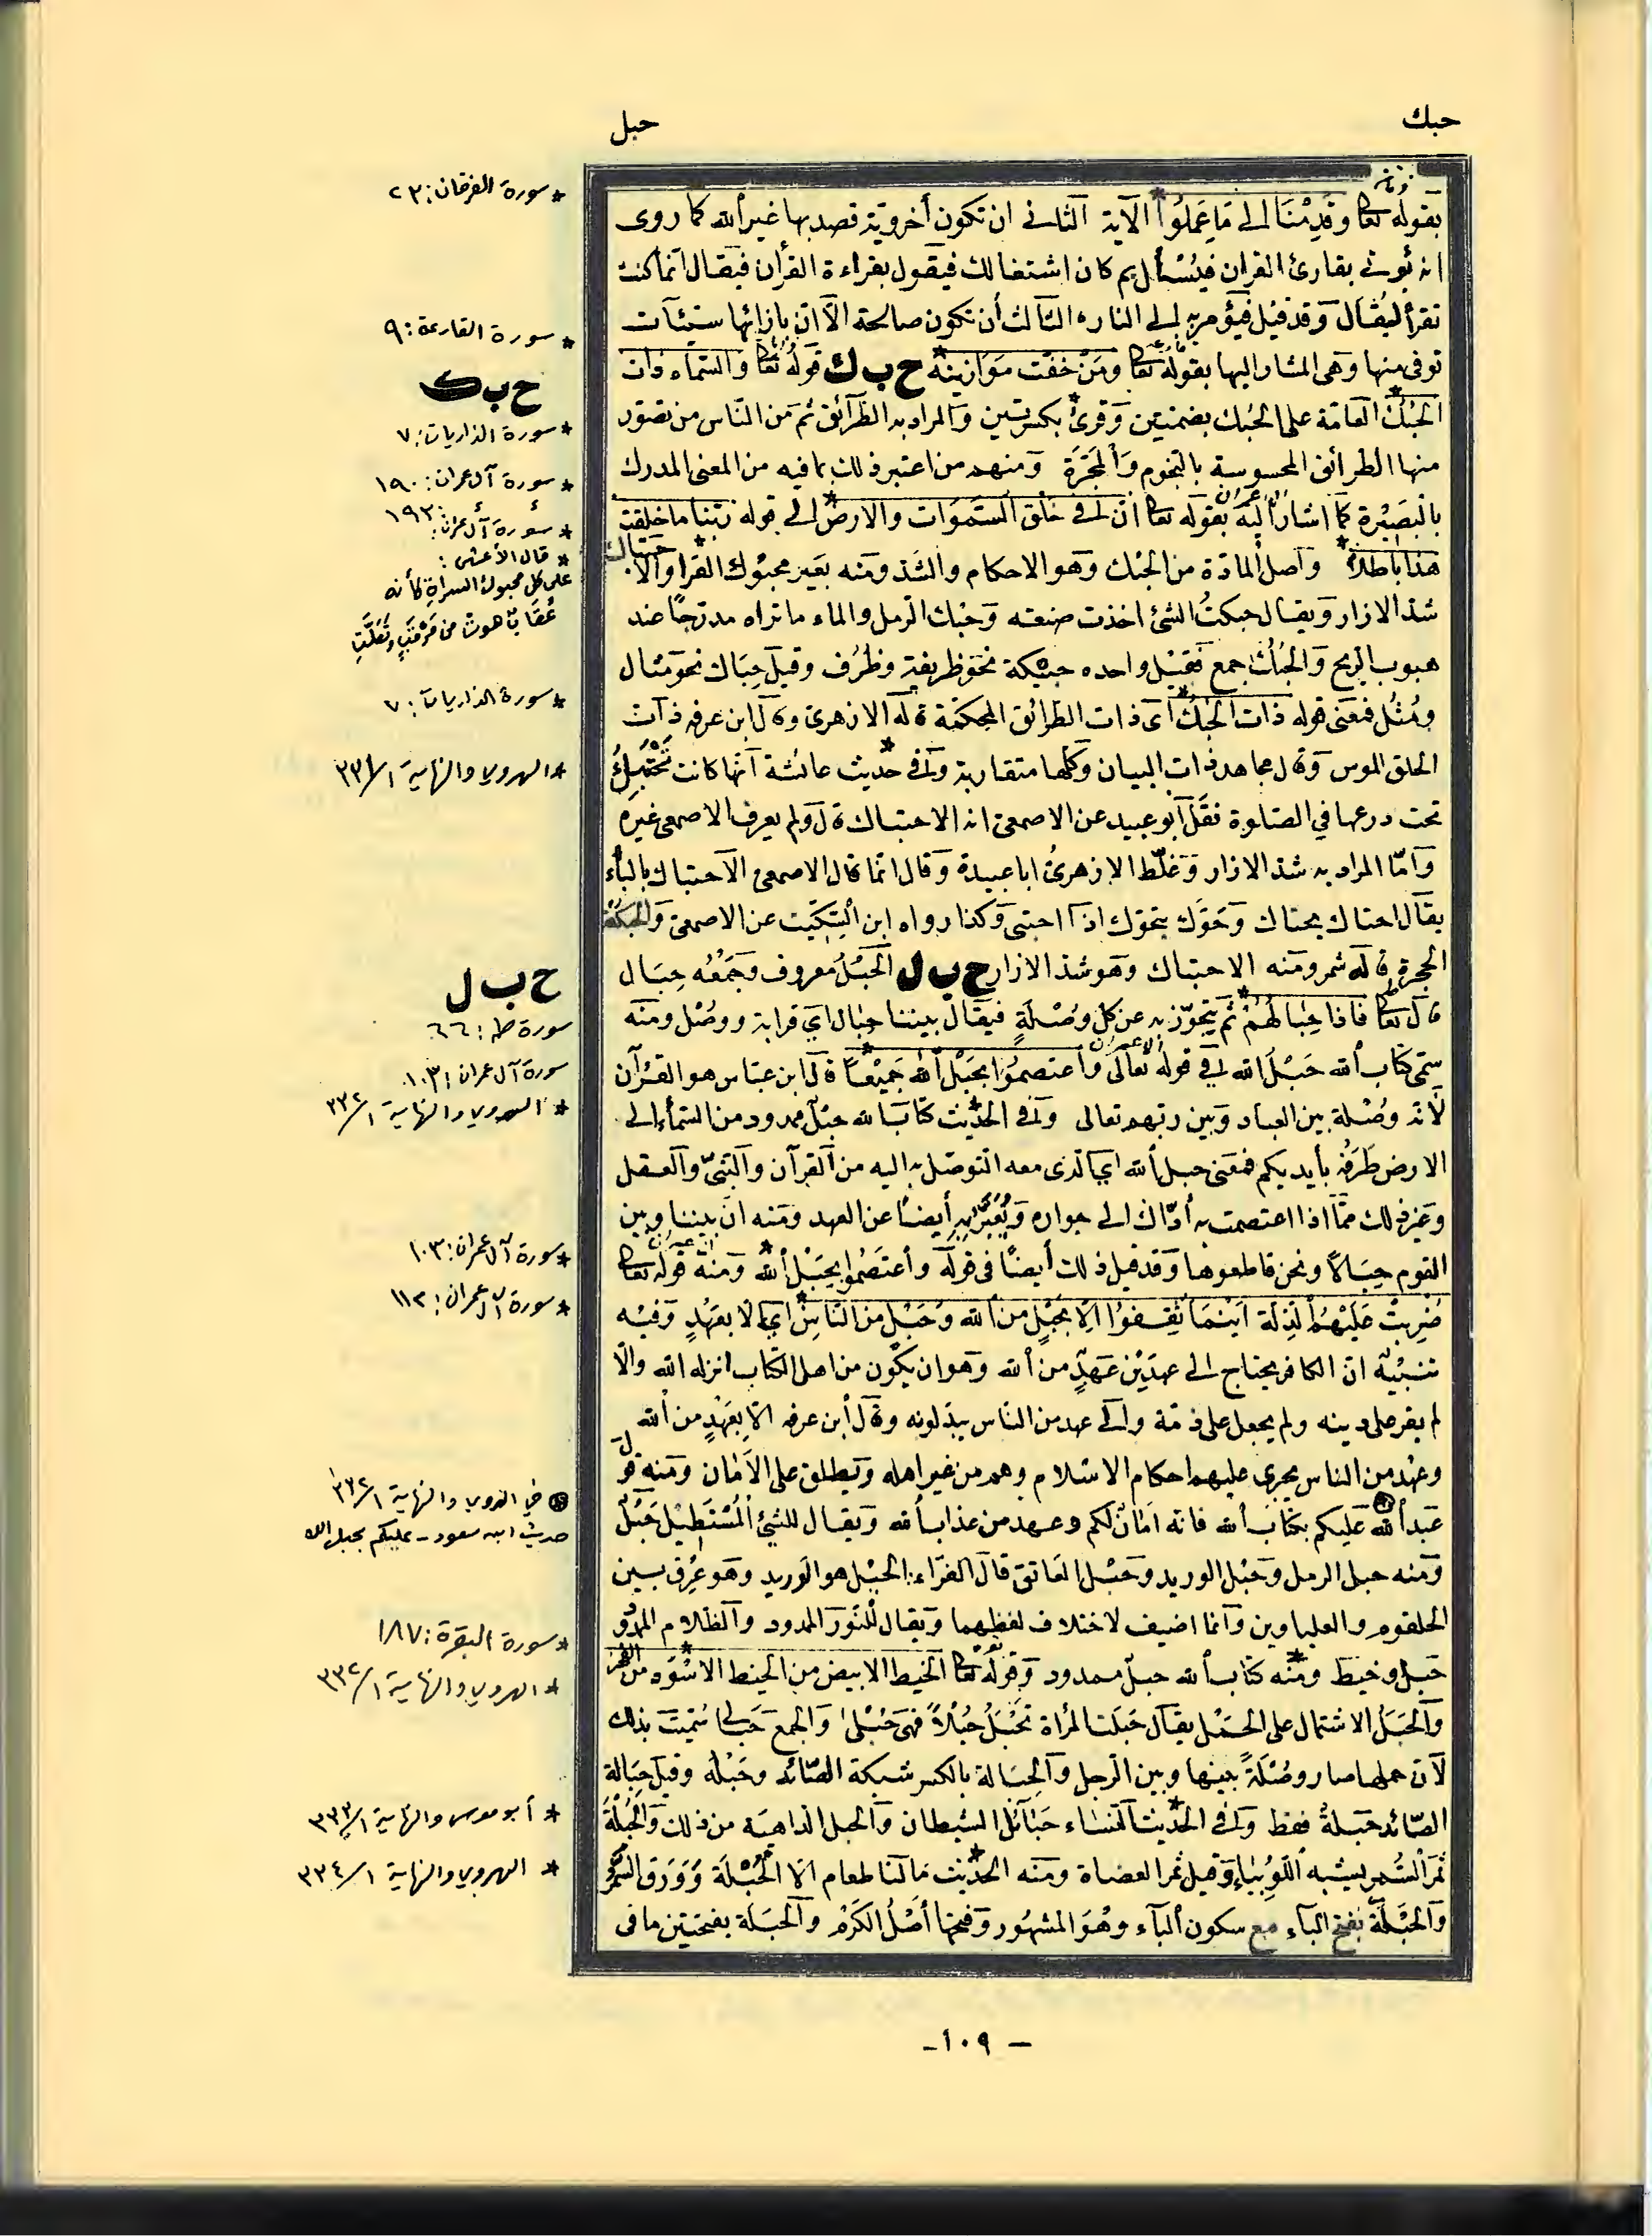 حبك
حبل
بقوله تعا وقدمنا الى ما عملوا الآية الثانى ان تكون أخروية قصد بها غير الله كما روى
انه يؤتى بقارئ القران فيسأل بم كان اشتغالك فيقول بقراءة القرأن فيقال انما كنت
تقرأ ليقال وقد قيل فيؤمر به الى النار الثالث أن تكون صالحة الا ان بازائها سيئات
توفى منها وهى المشار اليها بقوله تعا ومن خفت موازينه ح ب ك قوله تعا والسماء ذات
الحبك العامة على الحبك بضمتين وقرئ بكسرتين والمراد به الطرائق ثم من الناس من تصور
منها الطرائق المحسوسة بالنجوم والمجرة ومنهم من اعتبر ذلك بما فيه من المعنى المدرك
بالبصيرة كما اشار اليه بقوله تعا ان فى خلق السموات والارض الى قوله ربنا ما خلقت
هذا باطلا واصل المادة من الحبك وهو الاحكام والشد ومنه بعير محبوك القرا والاحتباك
شد الازار ويقال حبكت الشئ اخذت صنعته وحبك الرمل والماء ما تراه مدرجا عند
هبوب الريح والحبك جمع فقيل واحده حبيكة نحو ظريفة وظرف وقيل حباك نحو مثال
ومثل فمعنى قوله ذات الحبك اى ذات الطرائق المحكمة قاله الازهرى وقال ابن عرفه ذات
الخلق الموس وقال مجاهد ذات البيان وكلها متقاربة وفى حديث عائشة انها كانت تحتبك
تحت درعها في الصلوة نقل ابو عبيد عن الاصمعى انه الاحتباك قال ولم يعرف الاصمعى غيره
وامّا المراد به شد الازار وغلّط الازهرى ابا عبيدة وقال انما قال الاصمعى الاحتباك بالياء
يقال احتاك يحتاك وتحوّك يتحوّك اذا احتبى وكذا رواه ابن السكيت عن الاصمعى والحبكة
الحجرة قاله شمر ومنه الاحتباك وهو شد الازار ح ب ل الحبل معروف وجمعه حبال
قال تعا فاذا حبالهم ثم يتجوّز به عن كل وصلة فيقال بيننا حبال اي قرابة ووصل ومنه
سمى كتاب الله حبل الله في قوله تعالى واعتصموا بحبل الله جميعا قال ابن عباس هو القرآن
لانه وصلة بين العباد وبين ربهم تعالى وفى الحديث كتاب الله حبل ممدود من السماء الى
الارض طرفه بأيديكم فمعنى حبل الله اي الذى معه التوصّل به اليه من القرآن والنبىّ والعقل
وغير ذلك ممّا اذا اعتصمت به أدّاك الى جواره ويعبر به أيضا عن العهد ومنه ان بيننا وبين
القوم حبالا ونحن قاطعوها وقد قيل ذلك أيضا فى قوله وأعتصموا بحبل الله ومنه قوله تعا
ضربت عليهم الذلة اينما ثقفوا الا بحبل من الله وحبل من الناس اي الا بعهد وفيه
تنبيه ان الكافر يحتاج الى عهدين عهد من الله وهو ان يكون من اهل الكتاب انزله الله والّا
لم يقر على دينه ولم يجعل على ذمّة والى عهد من الناس يبذلونه وقال ابن عرفه الا بعهد من الله
وعهد من الناس يجرى عليهم احكام الاسلام وهم من غير اهله ويطلق على الأمان ومنه قول
عبد الله عليكم بكتاب الله فانه امان لكم وعهد من عذاب الله ويقال للشئ المستطيل حبل
ومنه حبل الرمل وحبل الوريد وحبل العاتق قال الفراء: الحبل هو الوريد وهو عرق بين
الحلقوم والعلباوين وانما اضيف لاختلاف لفظهما ويقال للنور الممدود والظلام الممدود
حبل وخيط ومنه كتاب الله حبل ممدود وقوله تعا الخيط الابيض من الخيط الاسود من الفجر
والحبل الاشتمال على الحمل يقال حبلت المرأة تحبل حبلا فهى حبلى والجمع حبالى سميت بذلك
لأن حملها صار وصلة بينها وبين الرجل والحبالة بالكسر شبكة الصائد وحبله وقيل حبالة
الصائد حبلة فقط وفى الحديث النساء حبائل الشيطان والحبل الداهية من ذلك والحبلة
ثمر السمر يشبه اللوبياء وقيل ثمر العضاة ومنه الحديث ما لنا طعام الا الحبلة وورق السمر
والحبلة بفتح الباء مع سكون الباء وهو المشهور وفتحها أصل الكرم والحبلة بفتحتين ما فى
* سورة الفرقان: ٢٣
* سورة القارعة: ٩
ح ب ك
* سورة الذاريات: ٧
* سورة آل عمران: ١٩٠
* سورة آل عمران: ١٩١
* قال الأعشى:
على كل محبوك السراة كأنه
عقاب هوت من مرقب وتعلت
* سورة الذاريات: ٧
* الهروى والنهاية ١/٣٣١
ح ب ل
سورة طه: ٦٦
سورة آل عمران: ١٠٣
* الهروى والنهاية ١/٣٣٢
* سورة آل عمران: ١٠٣
* سورة آل عمران: ١١٢
في الهروى والنهاية ١/٣٣٢
حديث ابن مسعود - عليكم بحبل الله
* سورة البقرة: ١٨٧
* الهروى والنهاية ١/٣٣٢
* أبو موسى والنهاية ١/٣٣٣
* الهروى والنهاية ١/٣٣٤
- ١٠٩ -